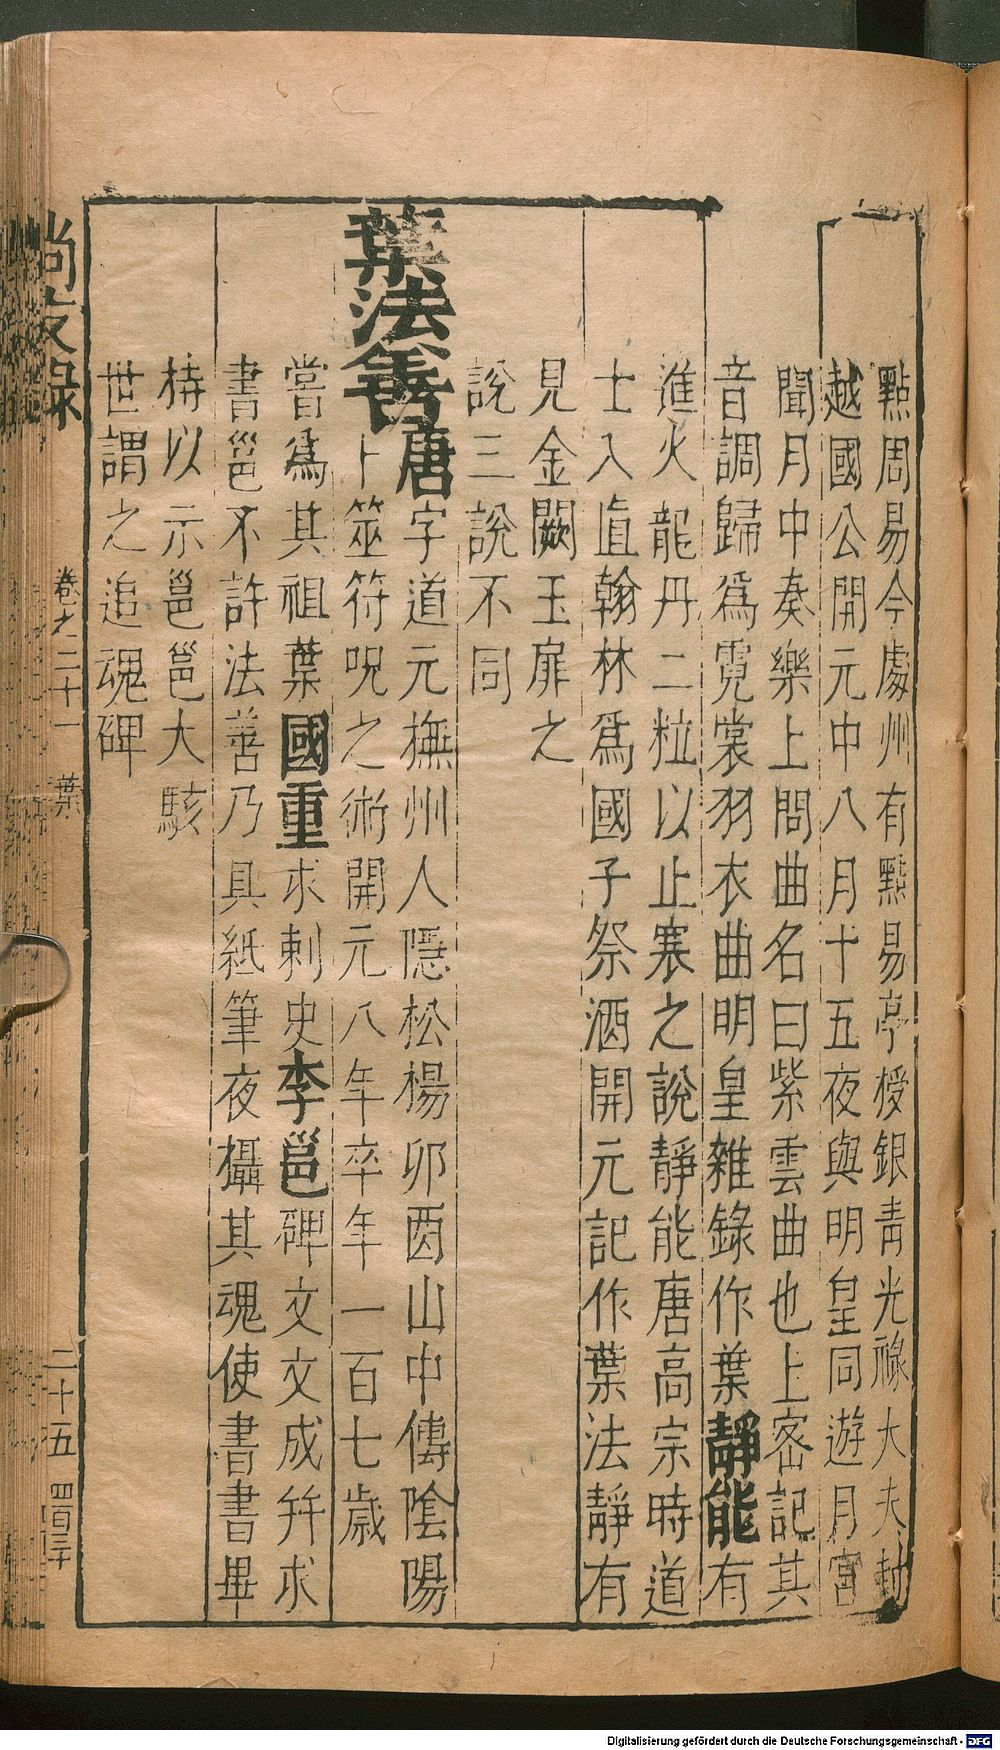 點周易今處州有點易亭授銀青光祿大夫封
越國公開元中八月十五夜與明皇同遊月宮
聞月中奏樂上問曲名曰紫雲曲也上密記其
音調歸爲霓裳羽衣曲明皇雜錄作葉靜能有
進火龍丹二粒以止寒之說靜能唐高宗時道
士入直翰林爲國子祭酒開元記作葉法靜有
見金闕玉扉之
說三說不同
葉法善唐字道元撫州人隱松楊卯酉山中傳陰陽
卜筮符呪之術開元八年卒年一百七歲
嘗爲其祖葉國重求刺史李邕碑文文成幷求
書邕不許法善乃具紙筆夜攝其魂使書書畢
持以示邕邕大駭
世謂之追魂碑
尚友錄 卷之二十一 葉 二十五 四百三十
Digitalisierung gefördert durch die Deutsche Forschungsgemeinschaft - DFG